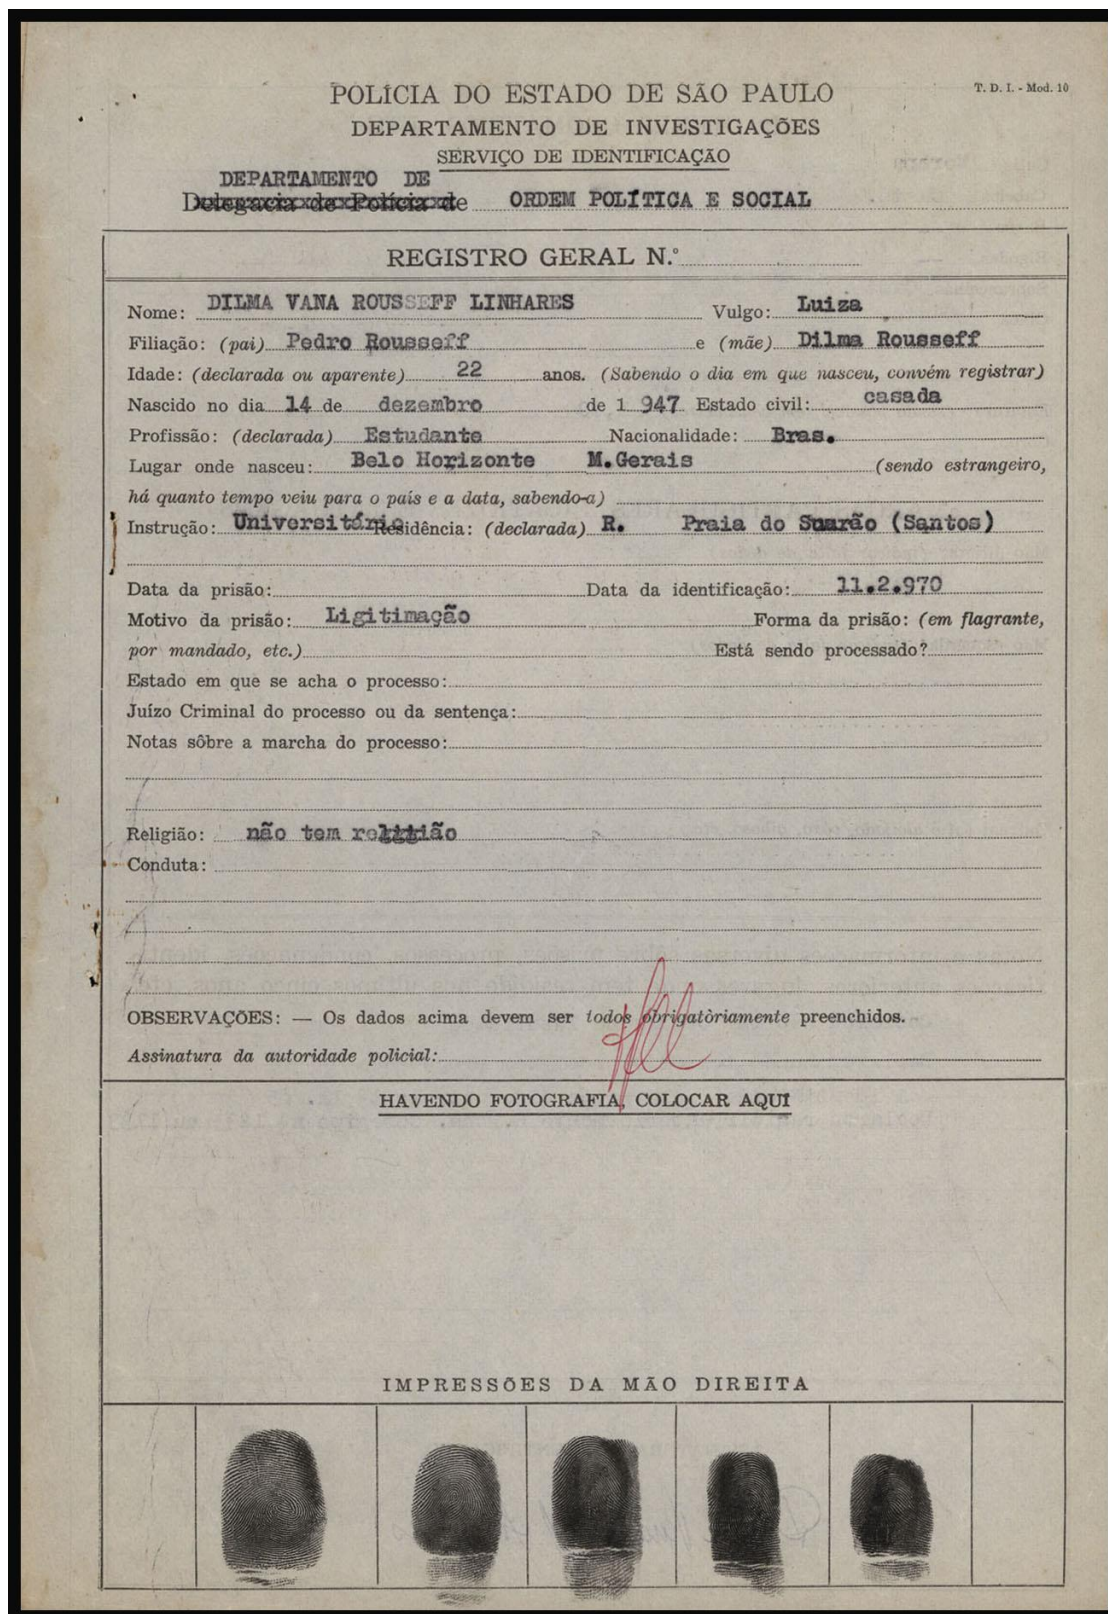 T. D. I. - Mod. 10
POLÍCIA DO ESTADO DE SÃO PAULO
DEPARTAMENTO DE INVESTIGAÇÕES
SERVIÇO DE IDENTIFICAÇÃO
DEPARTAMENTO DE
Delegacia de Polícia de ORDEM POLÍTICA E SOCIAL
REGISTRO GERAL N.º
Nome: DILMA VANA ROUSSEFF LINHARES Vulgo: Luiza
Filiação: (pai) Pedro Rousseff e (mãe) Dilma Rousseff
Idade: (declarada ou aparente) 22 anos. (Sabendo o dia em que nasceu, convém registrar)
Nascido no dia 14 de dezembro de 1 947 Estado civil: casada
Profissão: (declarada) Estudante Nacionalidade: Bras.
Lugar onde nasceu: Belo Horizonte M.Gerais (sendo estrangeiro,
há quanto tempo veiu para o país e a data, sabendo-a)
Instrução: Universitário Residência: (declarada) R. Praia do Suarão (Santos)
Data da prisão: Data da identificação: 11.2.970
Motivo da prisão: Ligitimação Forma da prisão: (em flagrante,
por mandado, etc.) Está sendo processado?
Estado em que se acha o processo:
Juízo Criminal do processo ou da sentença:
Notas sôbre a marcha do processo:
Religião: não tem religião
Conduta:
OBSERVAÇÕES: — Os dados acima devem ser todos obrigatòriamente preenchidos.
Assinatura da autoridade policial:
HAVENDO FOTOGRAFIA, COLOCAR AQUI
IMPRESSÕES DA MÃO DIREITA